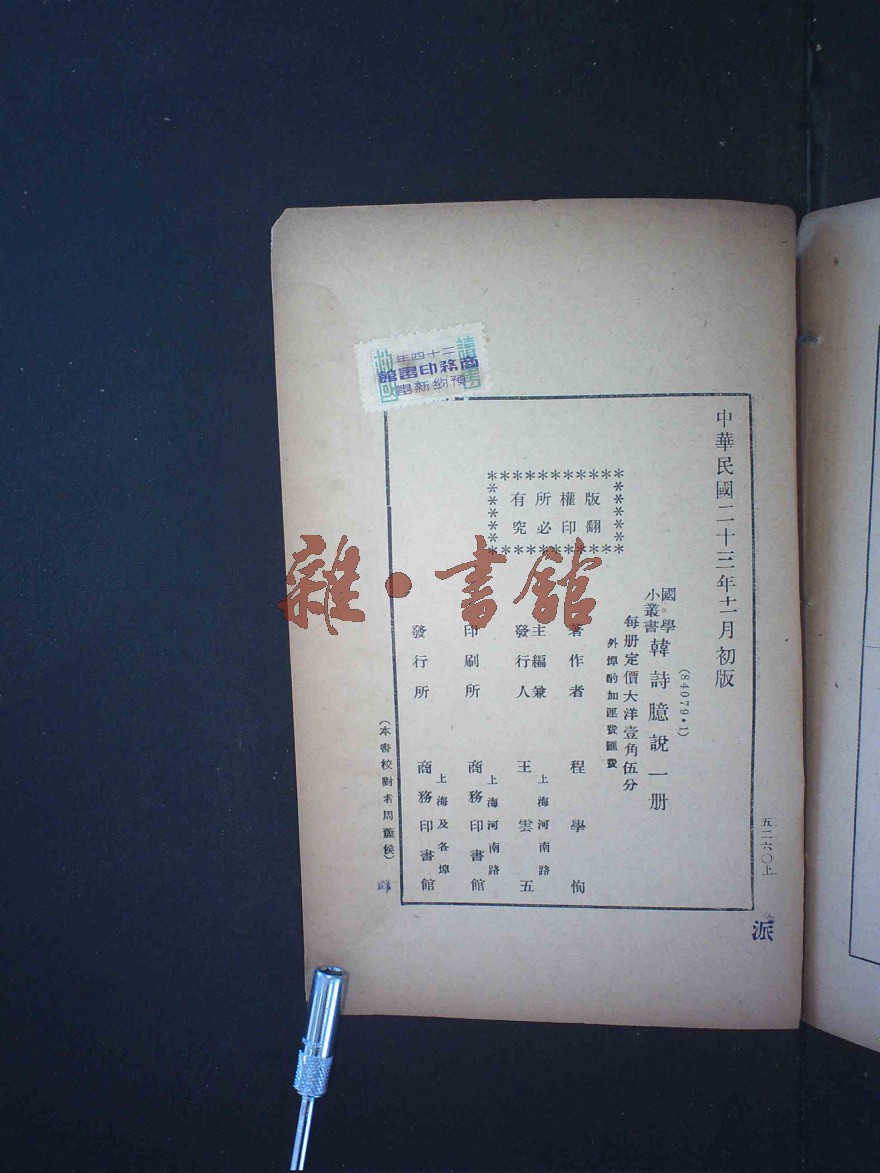 中華民國二十三年十一月初版
五二六〇上
派
(84079•1)
國學小叢書
韓詩臆說一册
每册定價大洋壹角伍分
外埠酌加運費匯費
版權所有
翻印必究
著作者 程學恂
主編兼發行人 王雲五
上海河南路
印刷所 商務印書館
上海河南路
發行所 商務印書館
上海及各埠
(本書校對者周蓋侯)
讀書救國
二十四年
商務印書館
預約新書
雜•書館